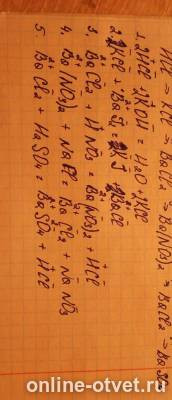 HCl → KCl → BaCl₂ → Ba(NO₃)₂ → BaCl₂ → BaSO
1. 2HCl + 2KOH = H₂O + 2KCl
2. 2KCl + BaJ₂ = 2KJ + 2BaCl
3. BaCl₂ + HNO₃ = Ba(NO₃)₂ + HCl
4. Ba(NO₃)₂ + NaCl = BaCl₂ + NaNO₃
5. BaCl₂ + H₂SO₄ = BaSO₄ + HCl
online-otvet.ru